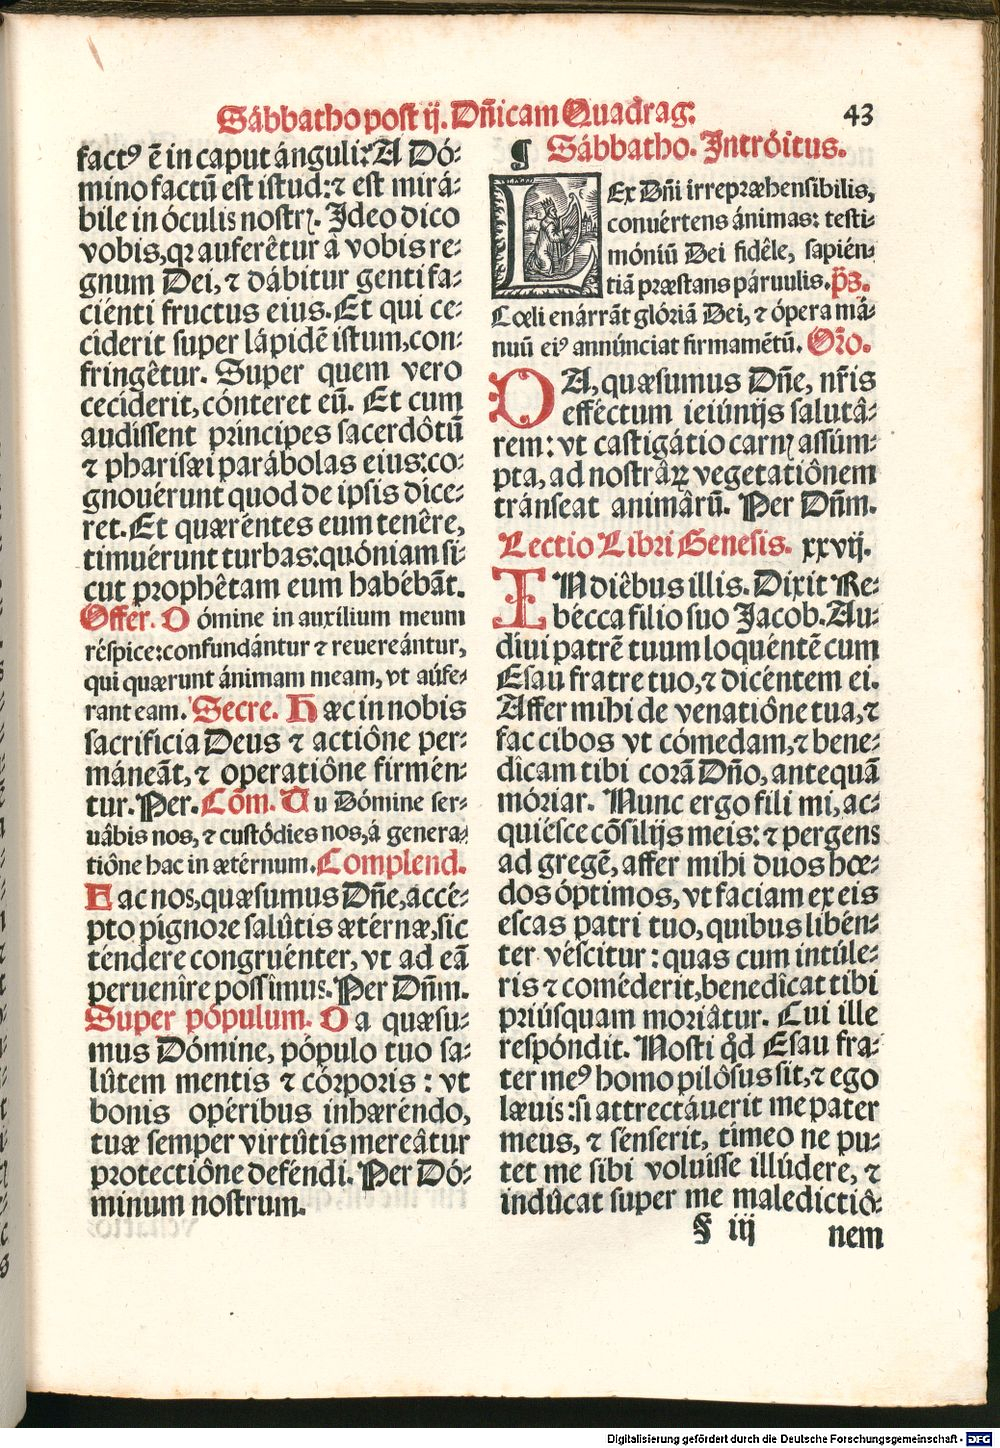 Sábbatho post ij. Dn̄icam Quadrag.
43
factꝰ ē in caput ánguli? A Dó-
mino factū est istud: ⁊ est mirá-
bile in óculis nostrꝭ. Ideo dico
vobis, qꝛ auferêtur à vobis re-
gnum Dei, ⁊ dábitur genti fa-
ciénti fructus eius. Et qui ce-
ciderit super lápidē istum, con-
fringêtur. Super quem vero
ceciderit, cónteret eū. Et cum
audissent príncipes sacerdôtū
⁊ pharisæi parábolas eius: co-
gnouérunt quod de ipsis díce-
ret. Et quæréntes eum tenêre,
timuérunt turbas: quóniam si-
cut prophêtam eum habébāt.
Offer. Dómine in auxílium meum
réspice: confundántur ⁊ reuereántur,
qui quærunt ánimam meam, vt aúfe-
rant eam. Secre. Hæc in nobis
sacrifícia Deus ⁊ actiône per-
máneāt, ⁊ operatiône firmén-
tur. Per. Cōm. Tu Dómine ser-
uâbis nos, ⁊ custódies nos, á genera-
tiône hac in ætérnum. Complend.
Fac nos, quæsumus Dn̄e, accé-
pto pígnore salûtis ætérnæ, sic
téndere congruénter, vt ad eā
peruenîre possîmus. Per Dn̄m.
Super pópulum. Da quæsu-
mus Dómine, pópulo tuo sa-
lûtem mentis ⁊ córporis: vt
bonis opéribus inhæréndo,
tuæ semper virtûtis mereâtur
protectiône deféndi. Per Dó-
minum nostrum.
¶ Sábbatho. Intróitus.
LEx Dn̄i irrepræhensíbilis,
conuértens ánimas: testi-
móniū Dei fidêle, sapién-
tiā præstans páruulis. p̄s.
Cœli enárrāt glóriā Dei, ⁊ ópera má-
nuū eiꝰ annúnciat firmamētū. Or̄o.
DA, quæsumus Dn̄e, nr̄is
efféctum ieiúnijs salutâ-
rem: vt castigátio carnꝭ assúm-
pta, ad nostrâꝝ vegetatiônem
tránseat animârū. Per Dn̄m.
Lectio Libri Genesis. xxvij.
IN diêbus illis. Dixit Re-
bécca filio suo Jacob. Au-
díui patrē tuum loquéntē cum
Esau fratre tuo, ⁊ dicéntem ei.
Affer mihi de venatiône tua, ⁊
fac cibos vt cómedam, ⁊ bene-
dîcam tibi corā Dn̄o, antequā
móriar. Nunc ergo fili mi, ac-
quiésce cōsilijs meis: ⁊ pergens
ad gregē, affer mihi duos hœ-
dos óptimos, vt faciam ex eis
escas patri tuo, quibus libén-
ter véscitur: quas cum intúle-
ris ⁊ coméderit, benedîcat tibi
priúsquam moriâtur. Cui ille
respóndit. Nosti qd̄ Esau fra-
ter meꝰ homo pilôsus sit, ⁊ ego
læuis: si attrectáuerit me pater
meûs, ⁊ sénserit, tímeo ne pu-
tet me sibi voluisse illúdere, ⁊
indûcat super me maledictiô-
§ iij
nem
Digitalisierung gefördert durch die Deutsche Forschungsgemeinschaft - DFG